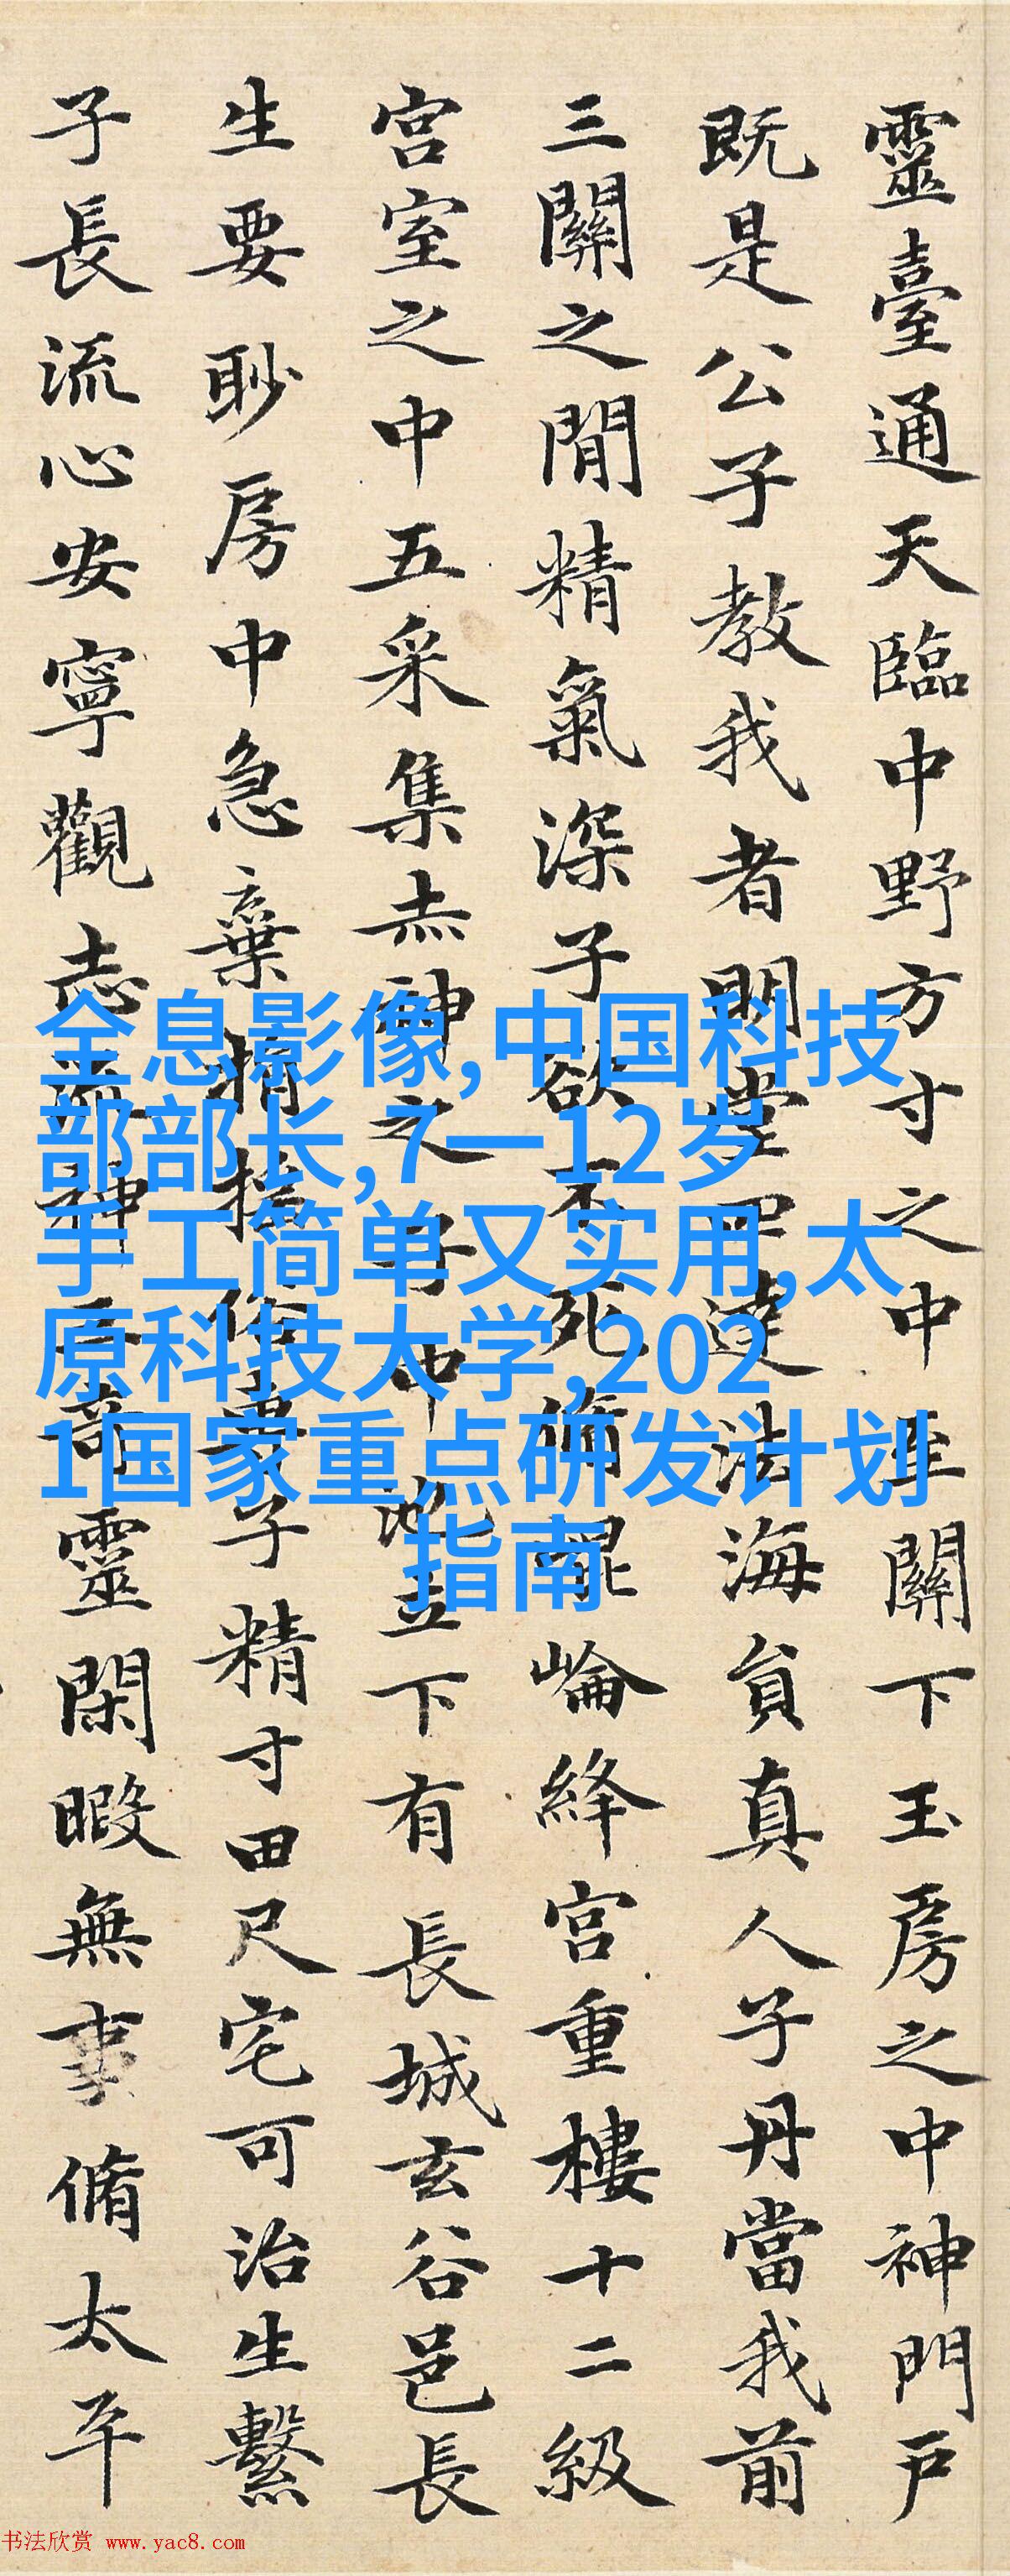 靈臺通天臨中野方寸之中至關下玉房之中神門戶
既是公子教我者明堂四達法海員真人子丹當我前
三關之閒精氣深子欲不死脩崐崘絳宮重樓十二級
宮室之中五采集赤神之子中池立下有長城玄谷邑長
生要眇房中急棄捐俗專子精寸田尺宅可治生繫
子長流心安寧觀志遊神三奇靈閑暇無事脩太平
全息影像,中国科技
部部长,7一12岁
手工简单又实用,太
原科技大学,202
1国家重点研发计划
指南
书法欣赏 www.yac8.com